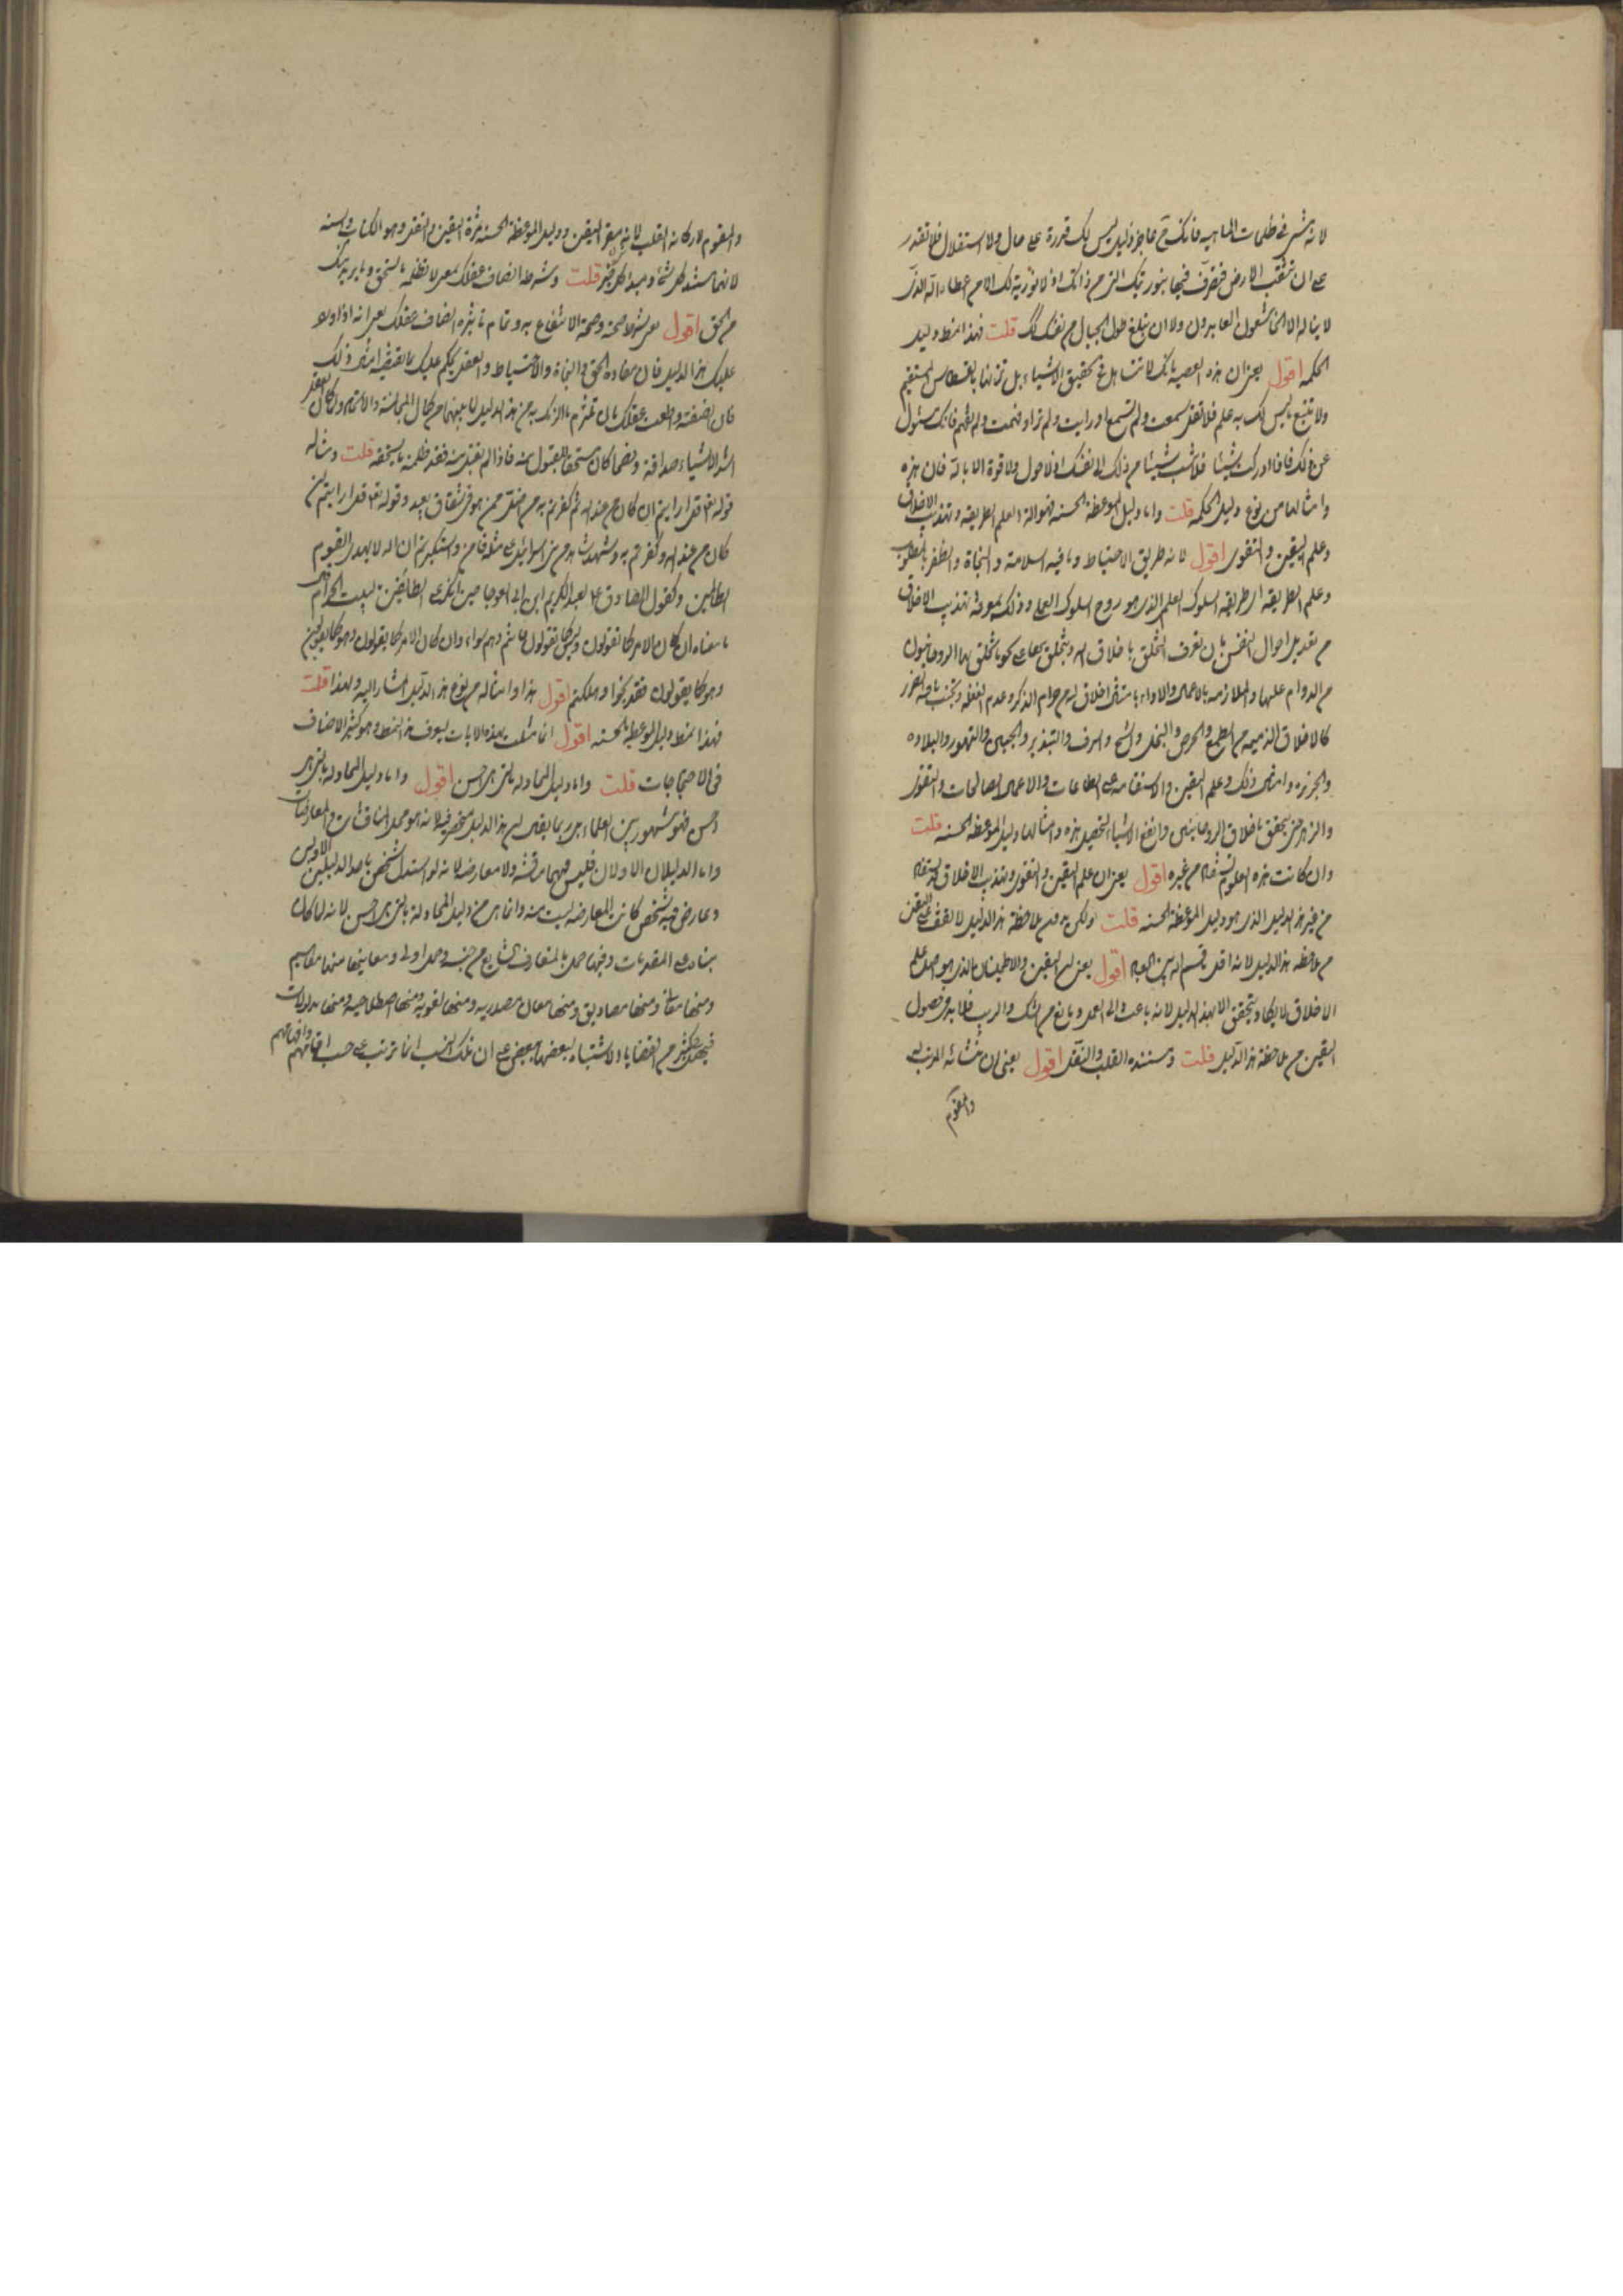 لانه تمشى فى ظلمات الماهية فانك ح عاجز ذليل ليس لك قدرة على حال ولا استقلال فلا تقدر
على ان تثقب الارض فتصرف فيها بنور تلك التى من ذاتك اذ لا نورية لك الا من عطاء الله الذى
لا يناله الا الخاشعون العابدون ولا ان تبلغ طول الجبال من نفسك قلت فهذا نمط دليل
الحكمة اقول يعنى ان هذه الوصية بانك لا تتساهل فى تحقيق الاشياء بل تزنها بالقسطاس المستقيم
ولا تتبع ما ليس لك به علم فلا تقل سمعت ولم تسمع او رايت ولم تر او فهمت ولم تفهم فانك مسئول
عن ذلك فاذا ادركت شيئا فلا تنسب شيئا من ذلك الى نفسك اذ لا حول ولا قوة الا بالله فان هذه
وامثالها من نوع دليل الحكمة قلت واما دليل الموعظة الحسنة فهو الة لعلم الطريقة وتهذيب الاخلاق
وعلم اليقين والتقوى اقول لانه طريق الاحتياط وما فيه السلامة والنجاة والظفر بالمطلوب
وعلم الطريقة اى طريقة السلوك العلم الذى هو روح السلوك العملى وذلك بمعرفة تهذيب الاخلاق
من تعديل احوال النفس بان تعرف التخلق باخلاق الله ويتخلق بها على نحو ما تخلق بها الروحانيون
من الدوام عليها والملازمة بالاعمال والاداء
كالاخلاق الذميمة من الطمع والحرص والبخل والشح والسرف والتبذير والجبن والتهور والبلادة
والجربزة وامثال ذلك وعلم اليقين والاستقامة على الطاعات والاعمال الصالحات والتقوى
والزهد حتى يتحقق باخلاق الروحانيين وانفع الاشياء لتحصيل هذه وامثالها دليل الموعظة الحسنة قلت
وان كانت هذه العلوم تستفاد من غيره اقول يعنى ان علم اليقين والتقوى وتهذيب الاخلاق قد تستفاد
من غير هذا الدليل الذى هو دليل الموعظة الحسنة قلت ولكن بدون ملاحظة هذا الدليل لا تقف على اليقين
من ملاحظة هذا الدليل لانه اقل ما قسم الله بين العباد اقول يعنى ان اليقين والاطمينان الذى هو اصل علم
الاخلاق لا يكاد يتحقق الا بهذا الدليل لانه باعث الى العمل ومانع من الشك والريب فلا بد فى حصول
اليقين من ملاحظة هذا الدليل قلت ومستنده القلب والنقل اقول يعنى ان منشائه المرتب له
والمقوم
والمقوم لاركانه القلب لانه مقر اليقين ودليل الموعظة الحسنة ثمرة اليقين والنقل وهو الكتاب والسنة
لانهما مستند كل شئ ومبدأ كل خير قلت وشرطه انصاف عقلك بمعنى لا تظلمه ما يستحق وما يريد منك
من الحق اقول يعنى شرط صحته وصحة الانتفاع به وتمام تاثيره انصاف عقلك يعنى انه اذا اورد
عليك هذا الدليل فان مفاده الحق والنجاة والاحتياط والعقل يحكم عليك بما يقتضيه امثال ذلك
فان انصفته واطعت عقلك بان تلتزم بما الزمك به من هذا الدليل لما بينهما من كمال المجانسة والالتئام ولما كان العقل
اشد الاشياء صداقة ونصحا كان مستحقا للقبول منه فاذا لم تقبل منه فقد ظلمته ما يستحقه قلت ومثاله
قوله تعالى قل ارايتم ان كان من عند الله ثم كفرتم به من اضل ممن هو فى شقاق بعيد وقوله تعالى قل ارايتم ان
كان من عند الله وكفرتم به وشهد شاهد من بنى اسرائيل على مثله فامن واستكبرتم ان الله لا يهدى القوم
الظالمين وكقول الصادق ع لعبد الكريم ابن ابى العوجا حين انكر على الطائفين بالبيت الحرام
ما معناه ان كان الامر كما تقولون وليس كما تقولون فانتم وهم سواء وان كان الامر كما يقولون وهو كما يقولون
وهو كما يقولون فقد نجوا وهلكتم اقول هذا وامثاله من نوع هذا الدليل المشار اليه ولهذا قلت
فهذا نمط دليل الموعظة الحسنة اقول انما مثلت بهذه الايات ليعرف هذا النمط وهو كثير الاصناف
فى الاحتجاجات قلت واما دليل المجادلة بالتى هى احسن اقول واما دليل المجادلة بالتى هى
احسن فهو مشهور بين العلماء بل ربما يقال ان هذا الدليل منحصر فيه لانه هو محل المناقشات والمعارضات
واما الدليلان الاولان فليس فيهما مناقشة ولا معارضة لانه لو استدل شخص باحد الدليلين الاولين
وعارض فيه شخص كانت المعارضة ليست منه وانما هى من دليل المجادلة بالتى هى احسن لانه لما كان
بناؤه على المقدمات وفيها حمل بالمتعارف الشايع ومن حمل اولى ومعانيها منها مفاهيم
ومنها معانى ومنها مصاديق ومنها معان مصدرية ومنها لغوية ومنها اصطلاحية ومنها مدلولات
فيحصل كثير من القضايا والاشتباه لبعضها ببعض على ان تلك النسب انما ترتب على حسب افهامهم